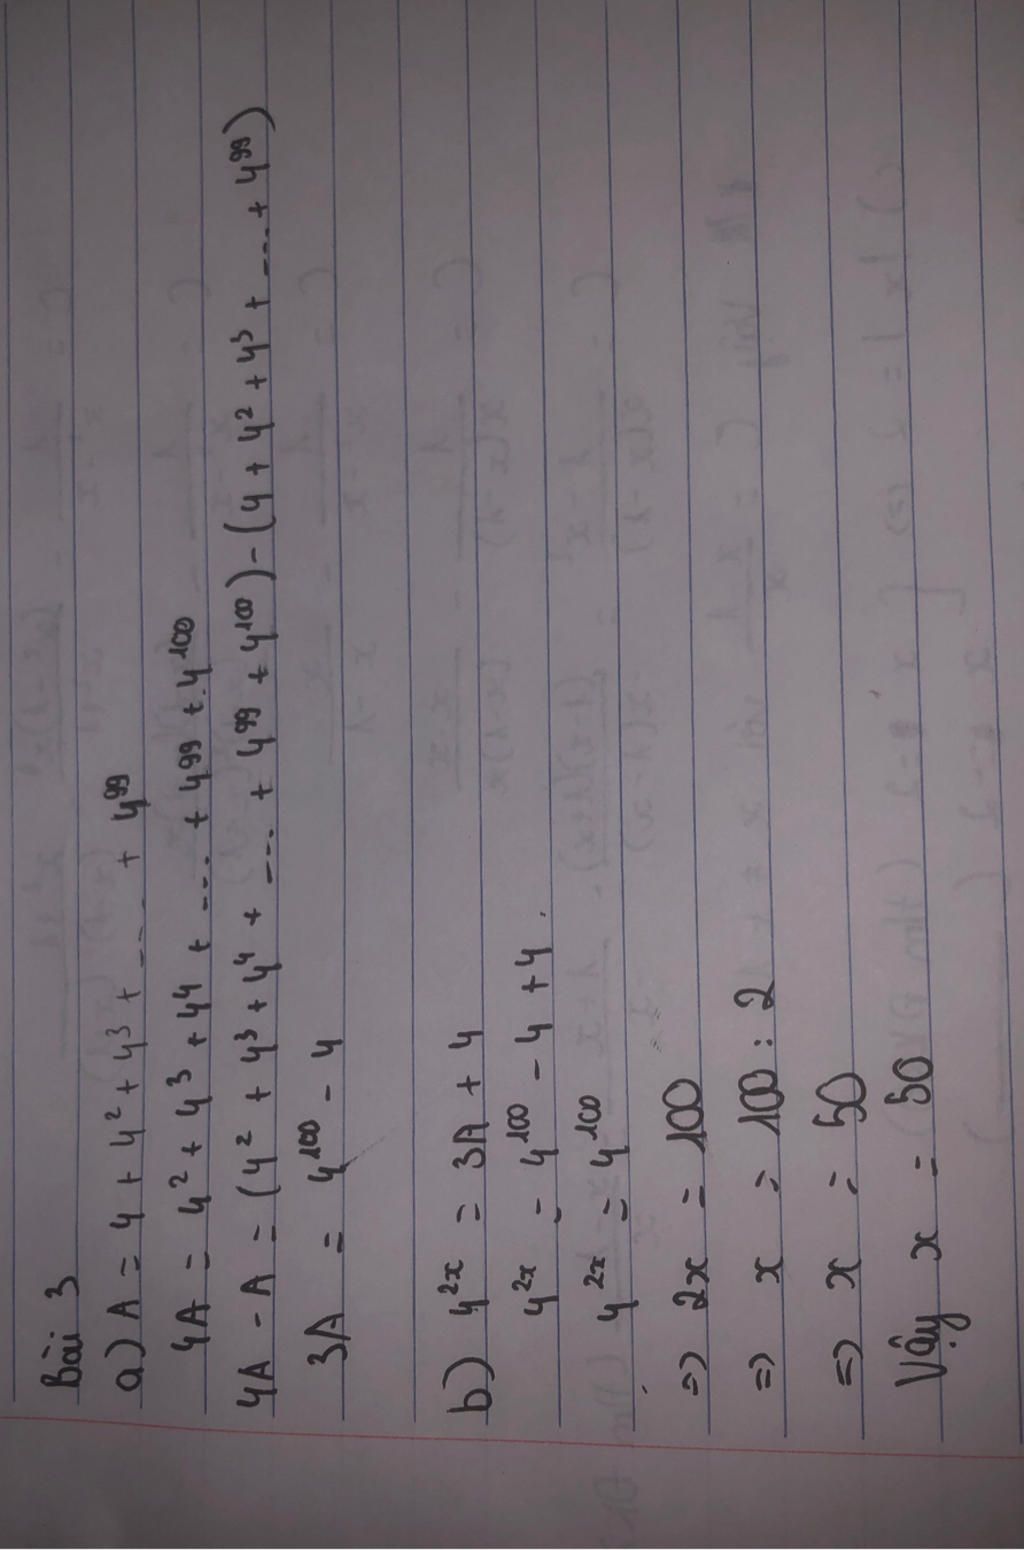 Bài 3
a) A = 4 + 4² + 4³ + .... + 4⁹⁹
4A = 4² + 4³ + 4⁴ + .... + 4⁹⁹ + 4¹⁰⁰
4A - A = (4² + 4³ + 4⁴ + .... + 4⁹⁹ + 4¹⁰⁰) - (4 + 4² + 4³ + .... + 4⁹⁹)
3A = 4¹⁰⁰ - 4
b) 4²ˣ = 3A + 4
4²ˣ = 4¹⁰⁰ - 4 + 4
4²ˣ = 4¹⁰⁰
=> 2x = 100
=> x = 100 : 2
=> x = 50
Vậy x = 50